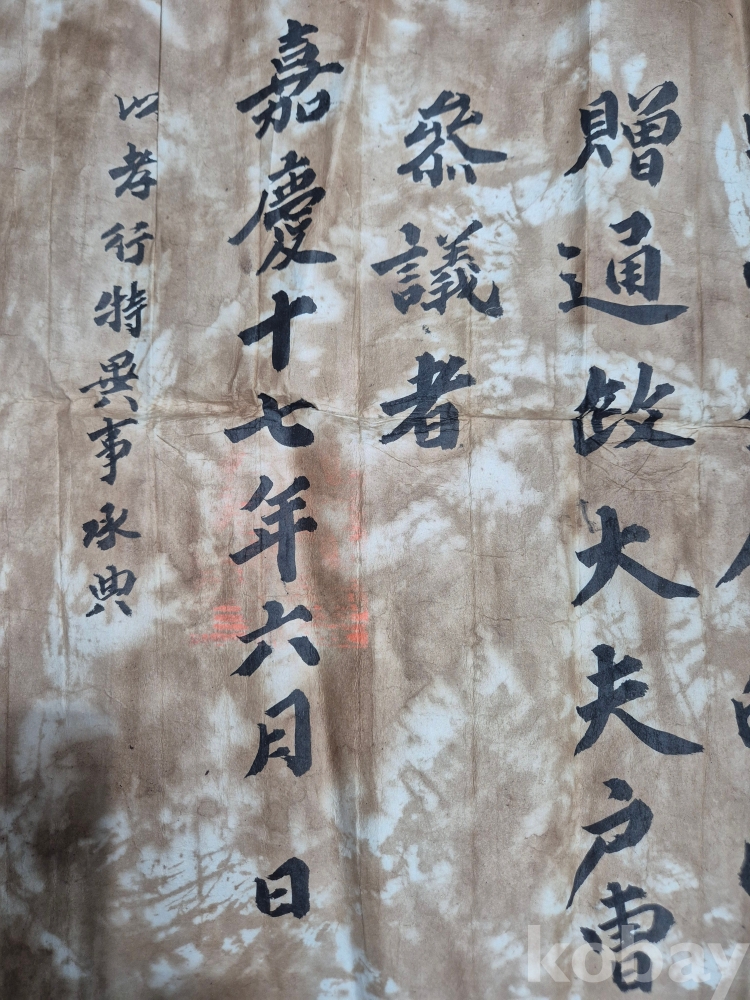 贈通政大夫戶曹
參議者
嘉慶十七年六月 日
以孝行特異事承典
kobay